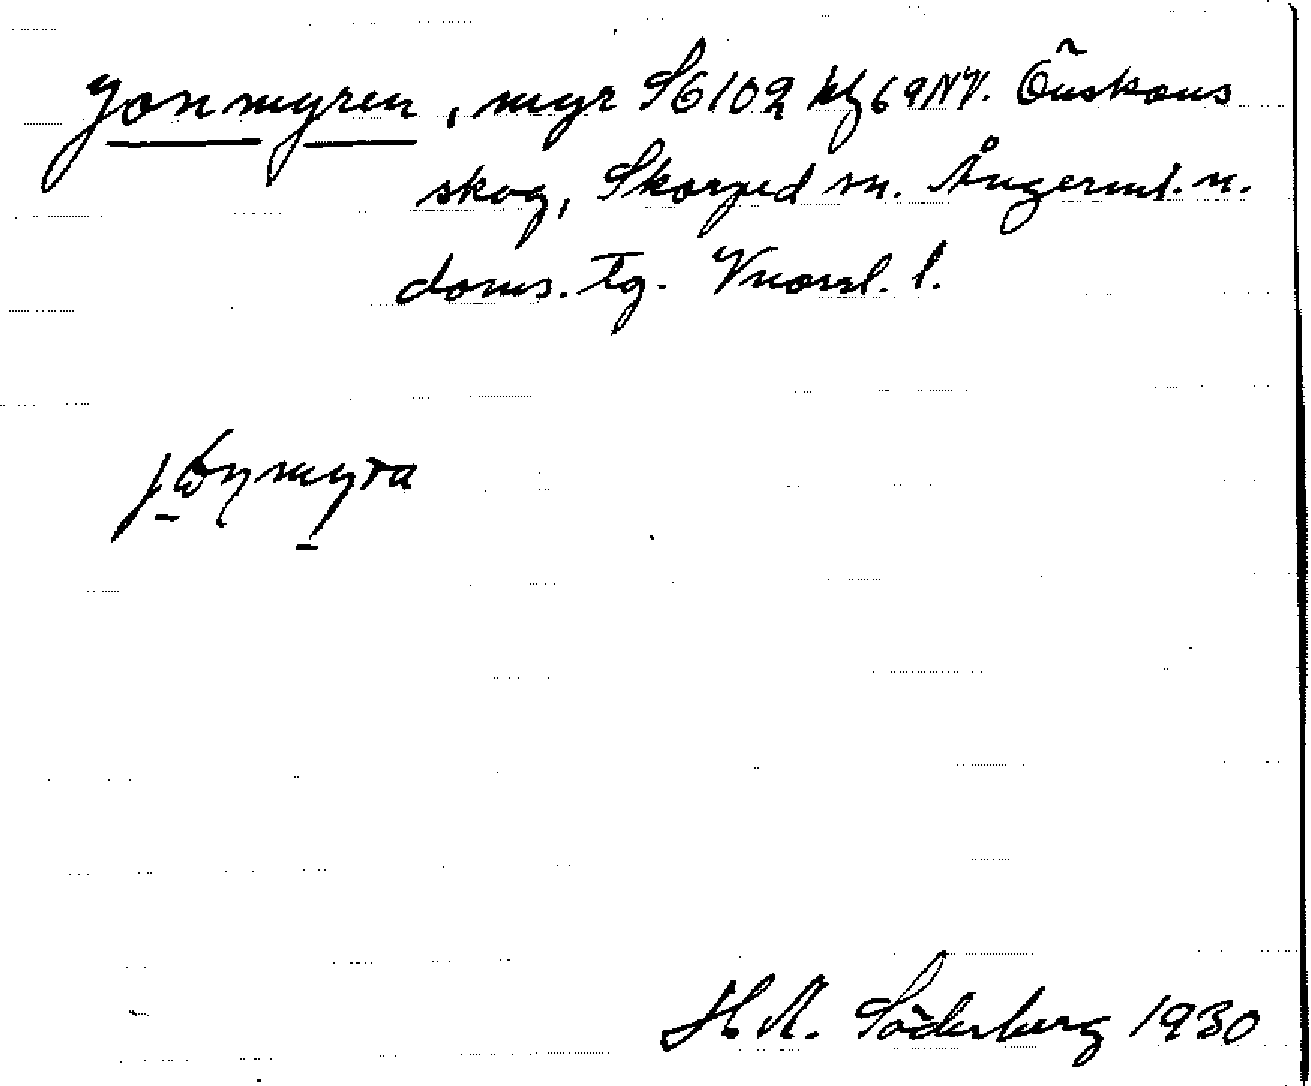 Jonmyren, myr S6102 kbl 69NV. Önskans
skog, Skorped sn. Ångerml. n.
doms. tg. Vnorrl. l.
H M. Söderberg 1930